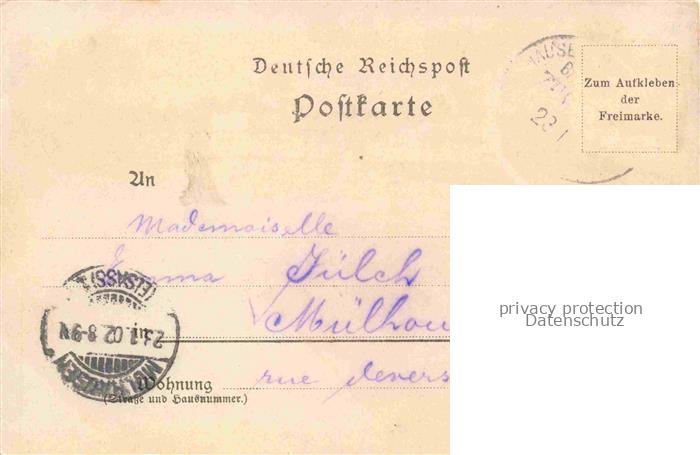 Deutsche Reichspost
Postkarte
Zum Aufkleben
der
Freimarke.
23 1
An
Mademoiselle
Emma Jülch
Mülhou
in
rue
Wohnung
(Straße und Hausnummer.)
(ELSASS) 1
23.1.02.8-9N
MÜLHAUSEN
privacy protection
Datenschutz